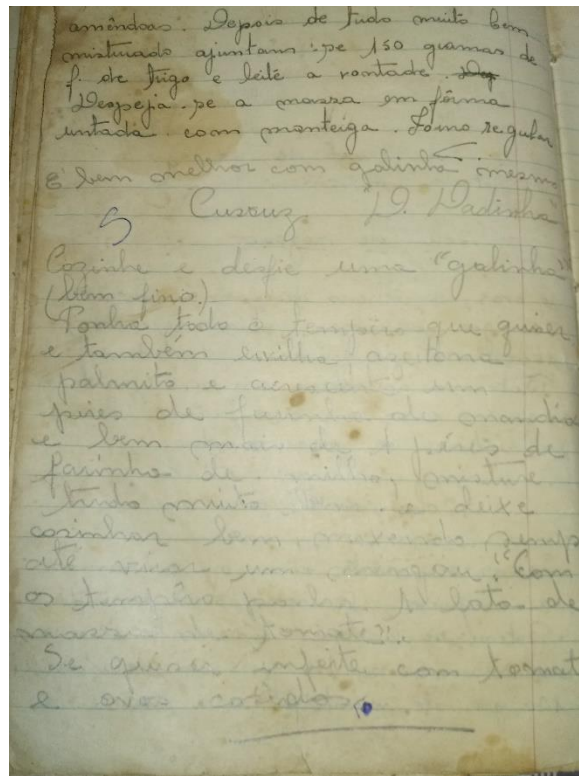 amêndoas. Depois de tudo muito bem
misturado ajuntam-se 150 gramas de
f. de trigo e leite a vontade.
Despeja-se a massa em fôrma
untada com manteiga. Forno regular
É bem melhor com galinha mesmo
Cuscuz "D. Dadinha"
Cozinhe e desfie uma "galinha"
(bem fino.)
Ponha todo o tempêro que quiser
e também ervilha azeitona
palmito e acrescente um
pires de farinha de mandio
e bem mais de 1 pires de
farinha de milho, misture
tudo muito bem e deixe
cozinhar bem, mexendo semp
até virar um "Com
os tempêro ponha 1 lata de
massa de tomate".
Se quiser enfeite com tomat
e ovos cozidos.